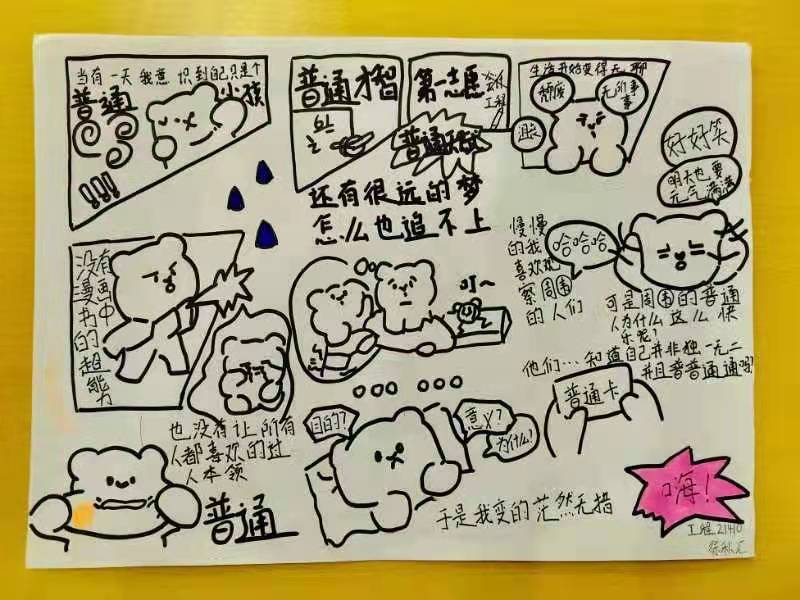 当有一天 我意识到自己只是个
普通
小孩
!!!
普通才智
第一志愿
工程
普通
还有很远的梦
怎么也追不上
生活开始变得无聊
颓废
无所事事
沮丧
好好笑
明天也要
元气满满
没有
漫画中
书
的超
能力
叮~
慢慢
的我
喜欢观
察周围
的人们
哈哈哈
可是周围的普通
人为什么这么快
乐呢?
他们…知道自己并非独一无二
并且普普通通吗?
普通卡
也没有让所有
人都喜欢的过
人本领
普通
目的?
意义?
为什么?
于是我变的茫然无措
嗨!
工程21410